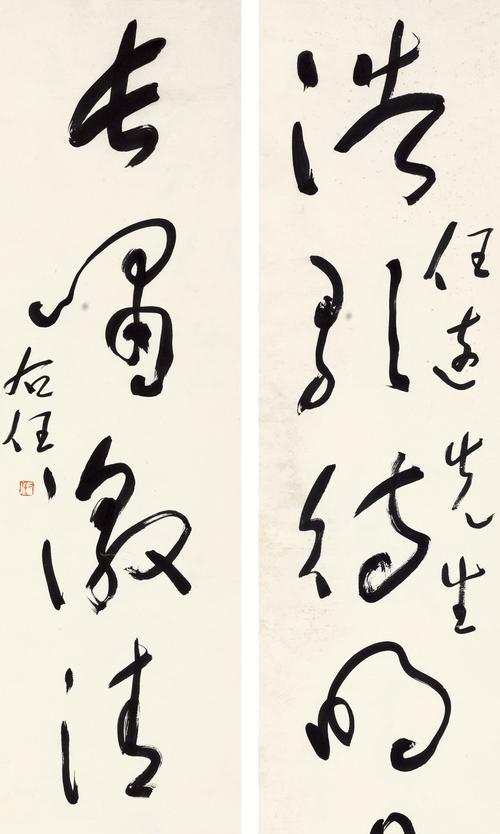 任遠先生
浩引待明
長嘯激清
右任